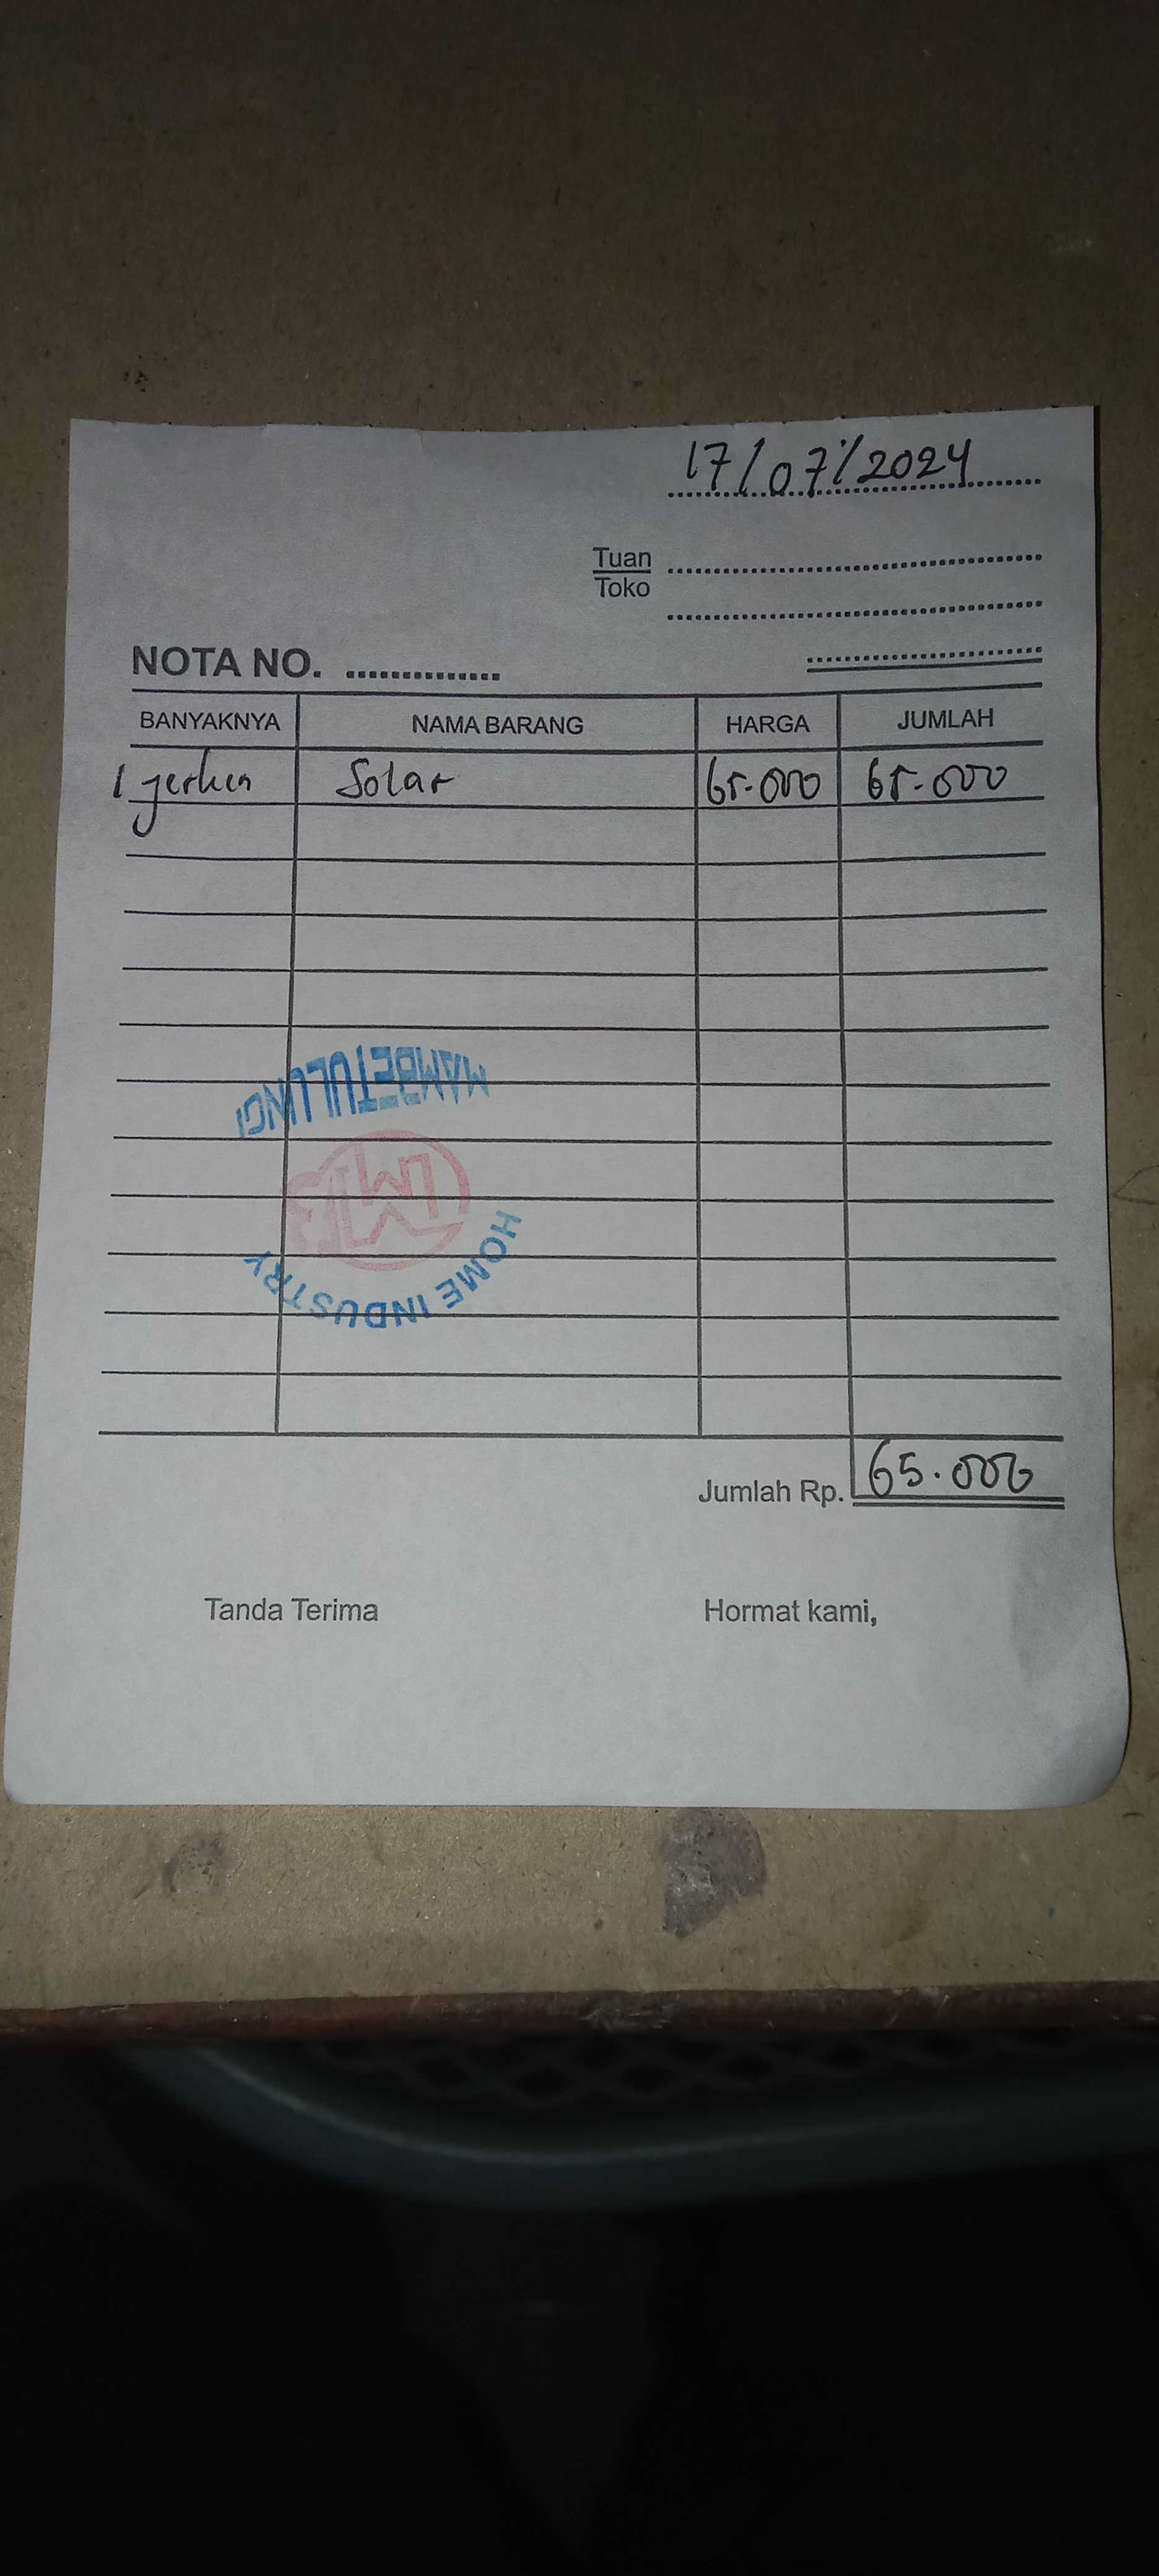 17/07/2024
Tuan
Toko
NOTA NO.
BANYAKNYA NAMA BARANG HARGA JUMLAH
1 jerken Solar 65.000 65.000
MAMBETULUNG
HOME INDUSTRY
Jumlah Rp. 65.000
Tanda Terima Hormat kami,